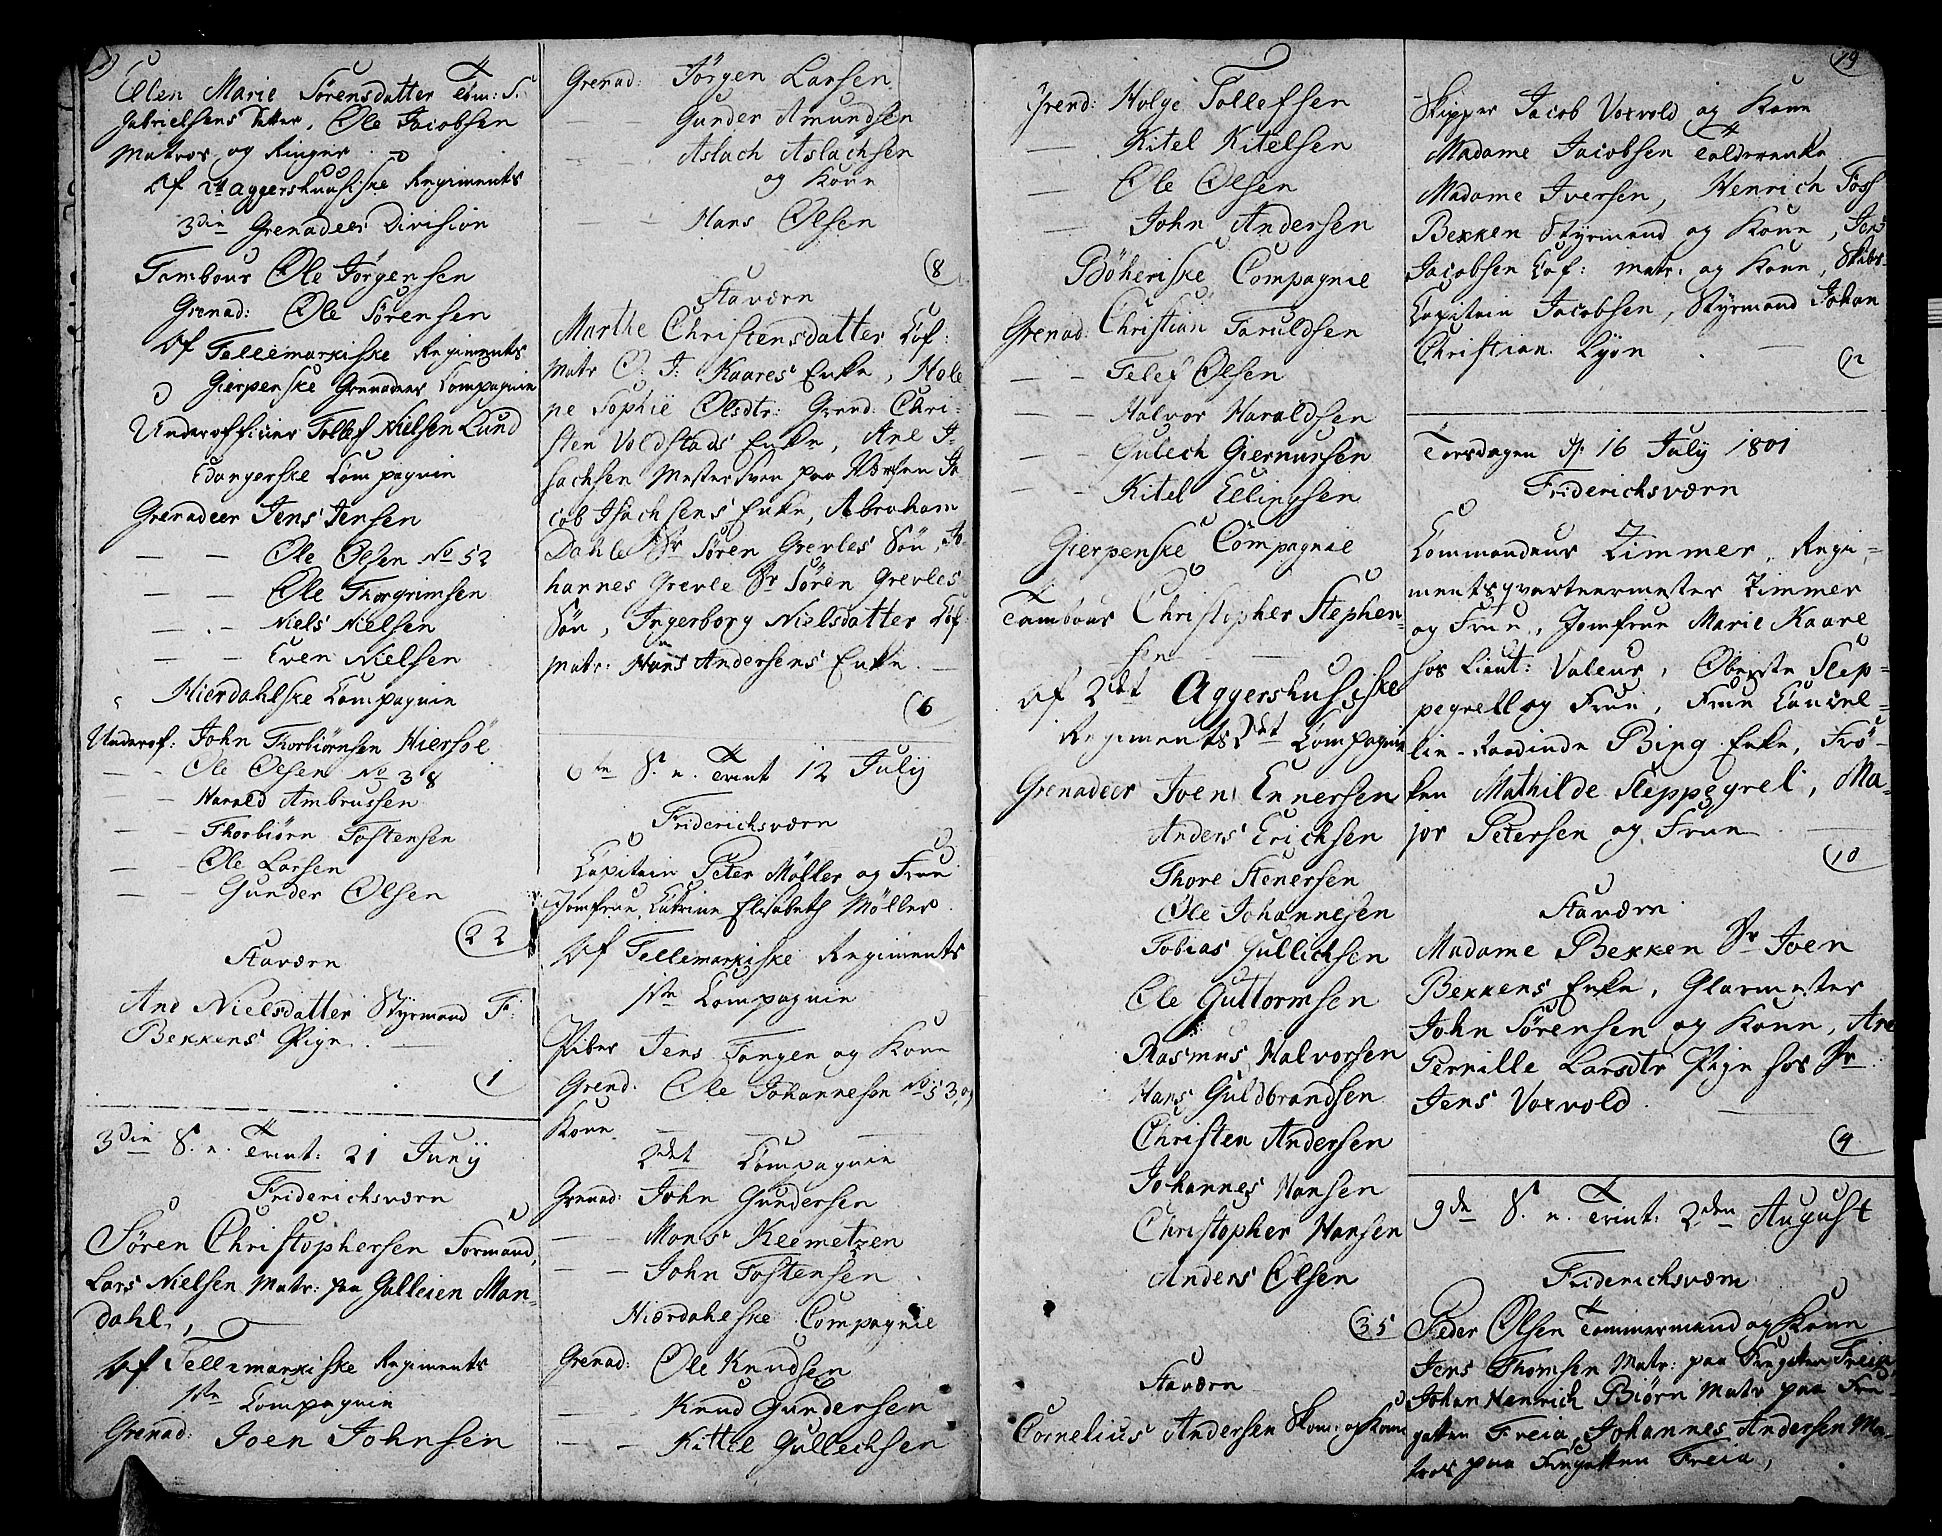 Ellen Marie Sørensdatter Tøm: S.
Gabrielsens Datter, Ole Jacobsen
Matros og Ringer
Af 2det Aggershuusiske Regiments
3die Grenadeer Division
Tambour Ole Jørgensen
Grenad: Ole Sørensen
Af Tellemarkiske Regiments
Gierpenske Grenadeer Compagnie
Underofficeer Tollef Nielsen Lund
Edangerske Compagnie
Grenadeer Jens Jensen
— — Ole Olsen No 52
— — Ole Thorgrimsen
— — Niels Nielsen
— — Even Nielsen
Hierdahlske Compagnie
Underof: John Thorbiørnsen Hiersøe
— — Ole Olsen No 38
— — Harald Ambrussen
— — Thorbiørn Tostensen
— — Ole Larsen
— — Gunder Olsen
22
Staværn
Ane Nielsdatter Styrmand F:
Bekkens Pige
1
3die S. e. Trint: 21 Junij
Friderichsværn
Søren Christophersen Formand,
Lars Nielsen Matr: paa Galleien Man-
dahl,
Af Tellemarkiske Regiments
1ste Compagnie
Grenad: Joen Johnsen
Grenad: Jørgen Larsen
Gunder Amundsen
— — Aslach Aslachsen
og Kone
— — Hans Olsen
8
Staværn
Marthe Christensdatter Kof:
Matr C. J: Kaares Enke, Hele-
ne Sophie Olsdtr: Grend: Chri-
sten Voldstads Enke, Ane I-
sachsen Mestersven paa Værften Ja
cob Isachsens Enke, Abraham
Dahle Sr Søren Grevles Søn, Jo-
hannes Grevle Sr Søren Grevles
Søn, Ingerborg Nielsdatter Kof:
Matr: Hans Andersens Enke. —
6
6te S. e. Trint 12 Julij
Friderichsværn
Capitain Peter Møller og Frue
Jomfrue Catrine Elisabeth Møller.
Af Tellemarkiske Regiments
1ste Compagnie
Piber Jens Tangen og Kone
Grend: Ole Johannesen No 53, og
Kone
2det Compagnie
Grenad: John Gundersen
— — Mons Keemetzen
— — John Tostensen
Hiærdahlske Compagnie
Grenad: Ole Knudsen
— — Knud Gundersen
— — Kittil Gullechsen
Grend: Helge Tollefsen
— — Kitel Kitelsen
— Ole Olsen
— John Andersen
Bøheriske Compagnie
Grenad: Christian Taruldsen
— — Telef Olsen
— — Halvor Haraldsen
— — Gulech Giermursen
— — Kitel Ellingsen
Gierpenske Compagnie
Tambour Christopher Stephen-
sen
Af 2det Aggershusiske
Regiments 2det Compagnie
Grenadeer Joen Ennersen
Anders Erichsen
Thore Stenersen
Ole Johannesen
Tobias Gullichsen
Ole Guttormsen
Rasmus Halvorsen
Hans Guldbrandsen
Christen Andersen
Johannes Hansen
Christopher Hansen
Anders Olsen
35
Staværn
Cornelius Andersen Skom: og Kone
19
Skipper Jacob Voxvold og Kone
Madame Jacobsen Tolderenke
Madame Iversen, Henrich Foss
Bekken Styrmand og Kone, Jens
Jacobsen Kof: Matr: og Kone, Skibs-
Capitain Jacobsen, Styrmand Johan
Christian Lyon
12
Torsdagen d. 16 July 1801
Friderichsværn
Commandeur Zimmer, Regi-
mentsqvarteermester Zimmer
og Frue, Jomfrue Marie Kaare
hos Lieut: Valeur, Oberste Slep-
pegrell og Frue, Frue Cancel-
lie-Raadinde Bing Enke, Frø-
ken Mathilde Sleppegrel, Ma-
jor Petersen og Frue
10
Staværn
Madame Bekken Sr Joen
Bekkens Enke, Glarmester
John Sørensen og Kone, Ane
Pernille Larsdtr Pige hos Sr
Jens Voxvold.
4
9de S. e. Trint: 2den August
Friderichsværn
Peder Olsen Tømmermand og Kone
Jens Thomsen Matr: paa Fregatten Freia
Johan Henrich Biørn Matr paa Fre-
gatten Freia, Johannes Andersen Ma-
tros paa Fregatten Freia,